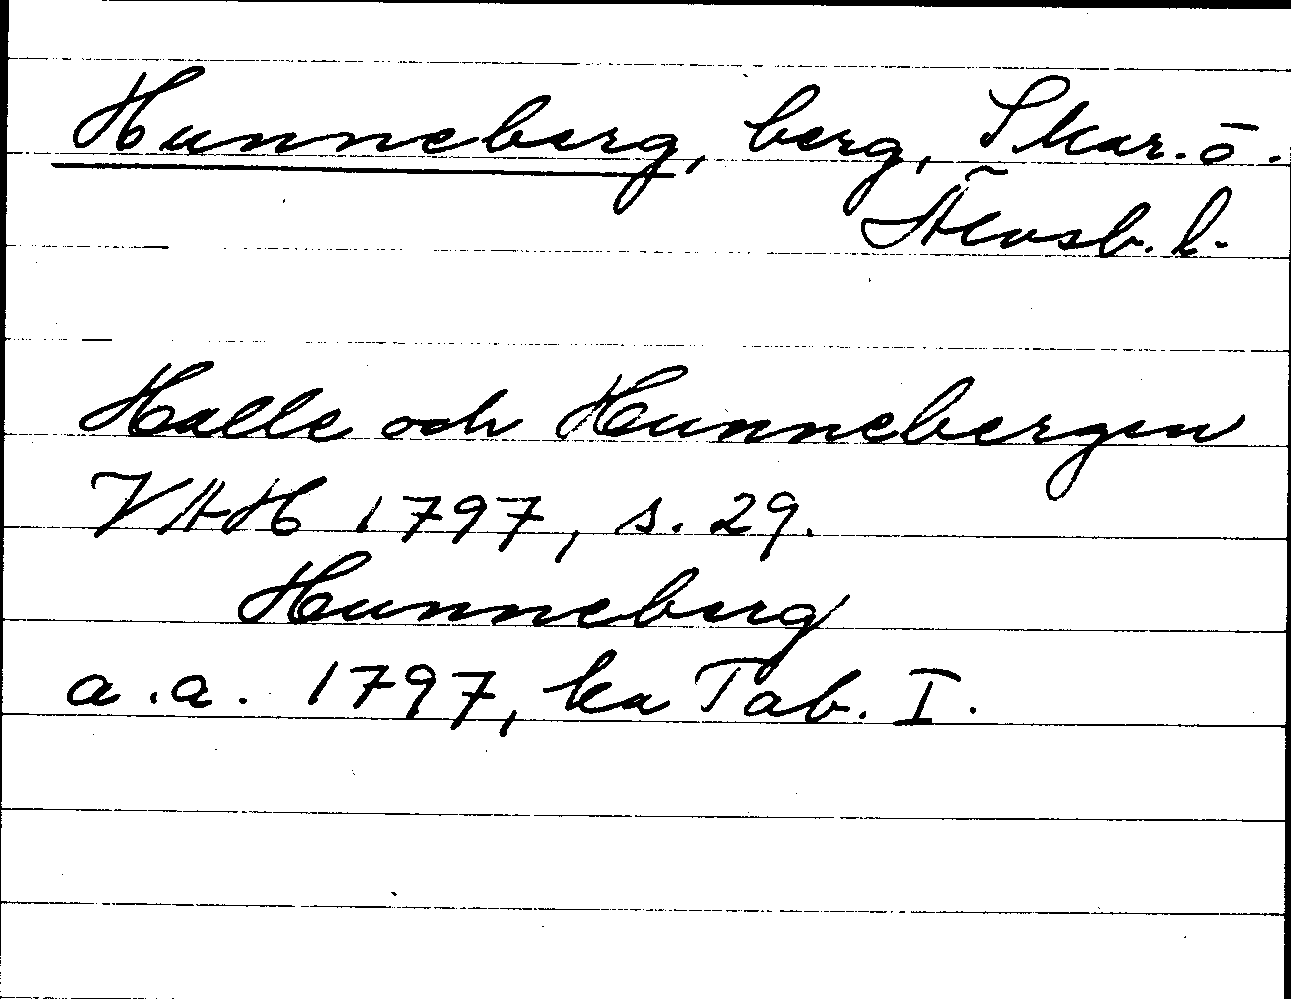 Hunneberg, berg, Skar. ö.
Älvsb. l.
Halle och Hunnebergen
VAH 1797, s. 29.
Hunneberg
a.a. 1797, ka Tab. I.